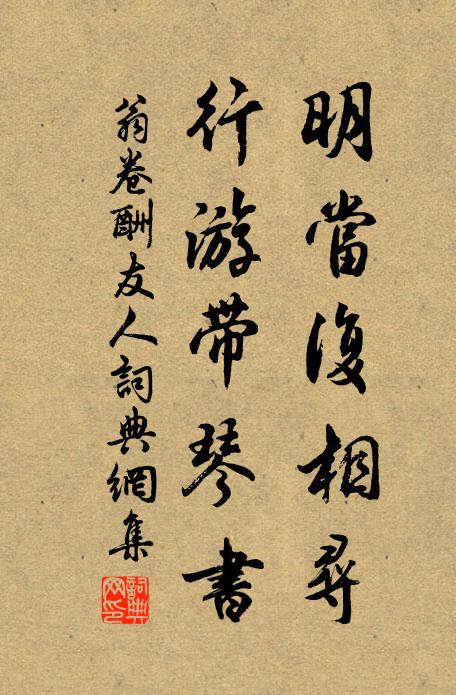 明當復相尋
行游帶琴書
翁卷酬友人詞典網集
詞典網印